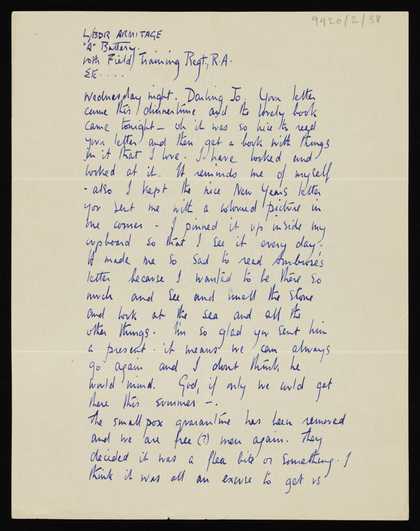 9920/2/38
L/BDR ARMITAGE
"A" Battery.
10th Field Training Regt, R.A.
S.E. ....
Wednesday night. Darling Jo. Your letter
came this dinnertime and the lovely book
came tonight - oh it was so nice to read
your letter and then get a book with things
in it that I love. I have looked and
looked at it. It reminds me of myself
- also I kept the nice New Years letter
you sent me with a coloured picture in
one corner - I pinned it up inside my
cupboard so that I see it every day.
It made me so sad to read Ambrose's
letter because I wanted to be there so
much and see and smell the stone
and look at the sea and all the
other things. I'm so glad you sent him
a present. it means we can always
go again and I dont think he
would mind. God, if only we could get
there this summer -.
The small pox quarantine has been removed
and we are free (?) men again. They
decided it was a flea bite or something. I
think it was all an excuse to get us